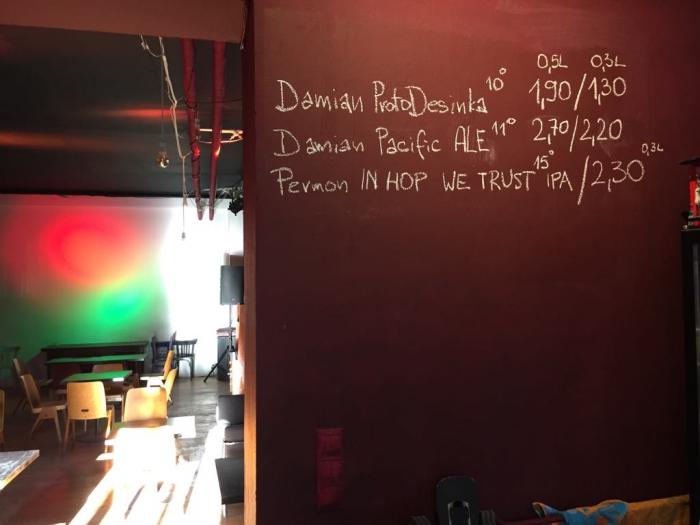 0,5L 0,3L
Damian ProtoDesinka 10° 1,90/1,30
Damian Pacific ALE 11° 2,70/2,20
Permon IN HOP WE TRUST 15° IPA /2,30 0,3L